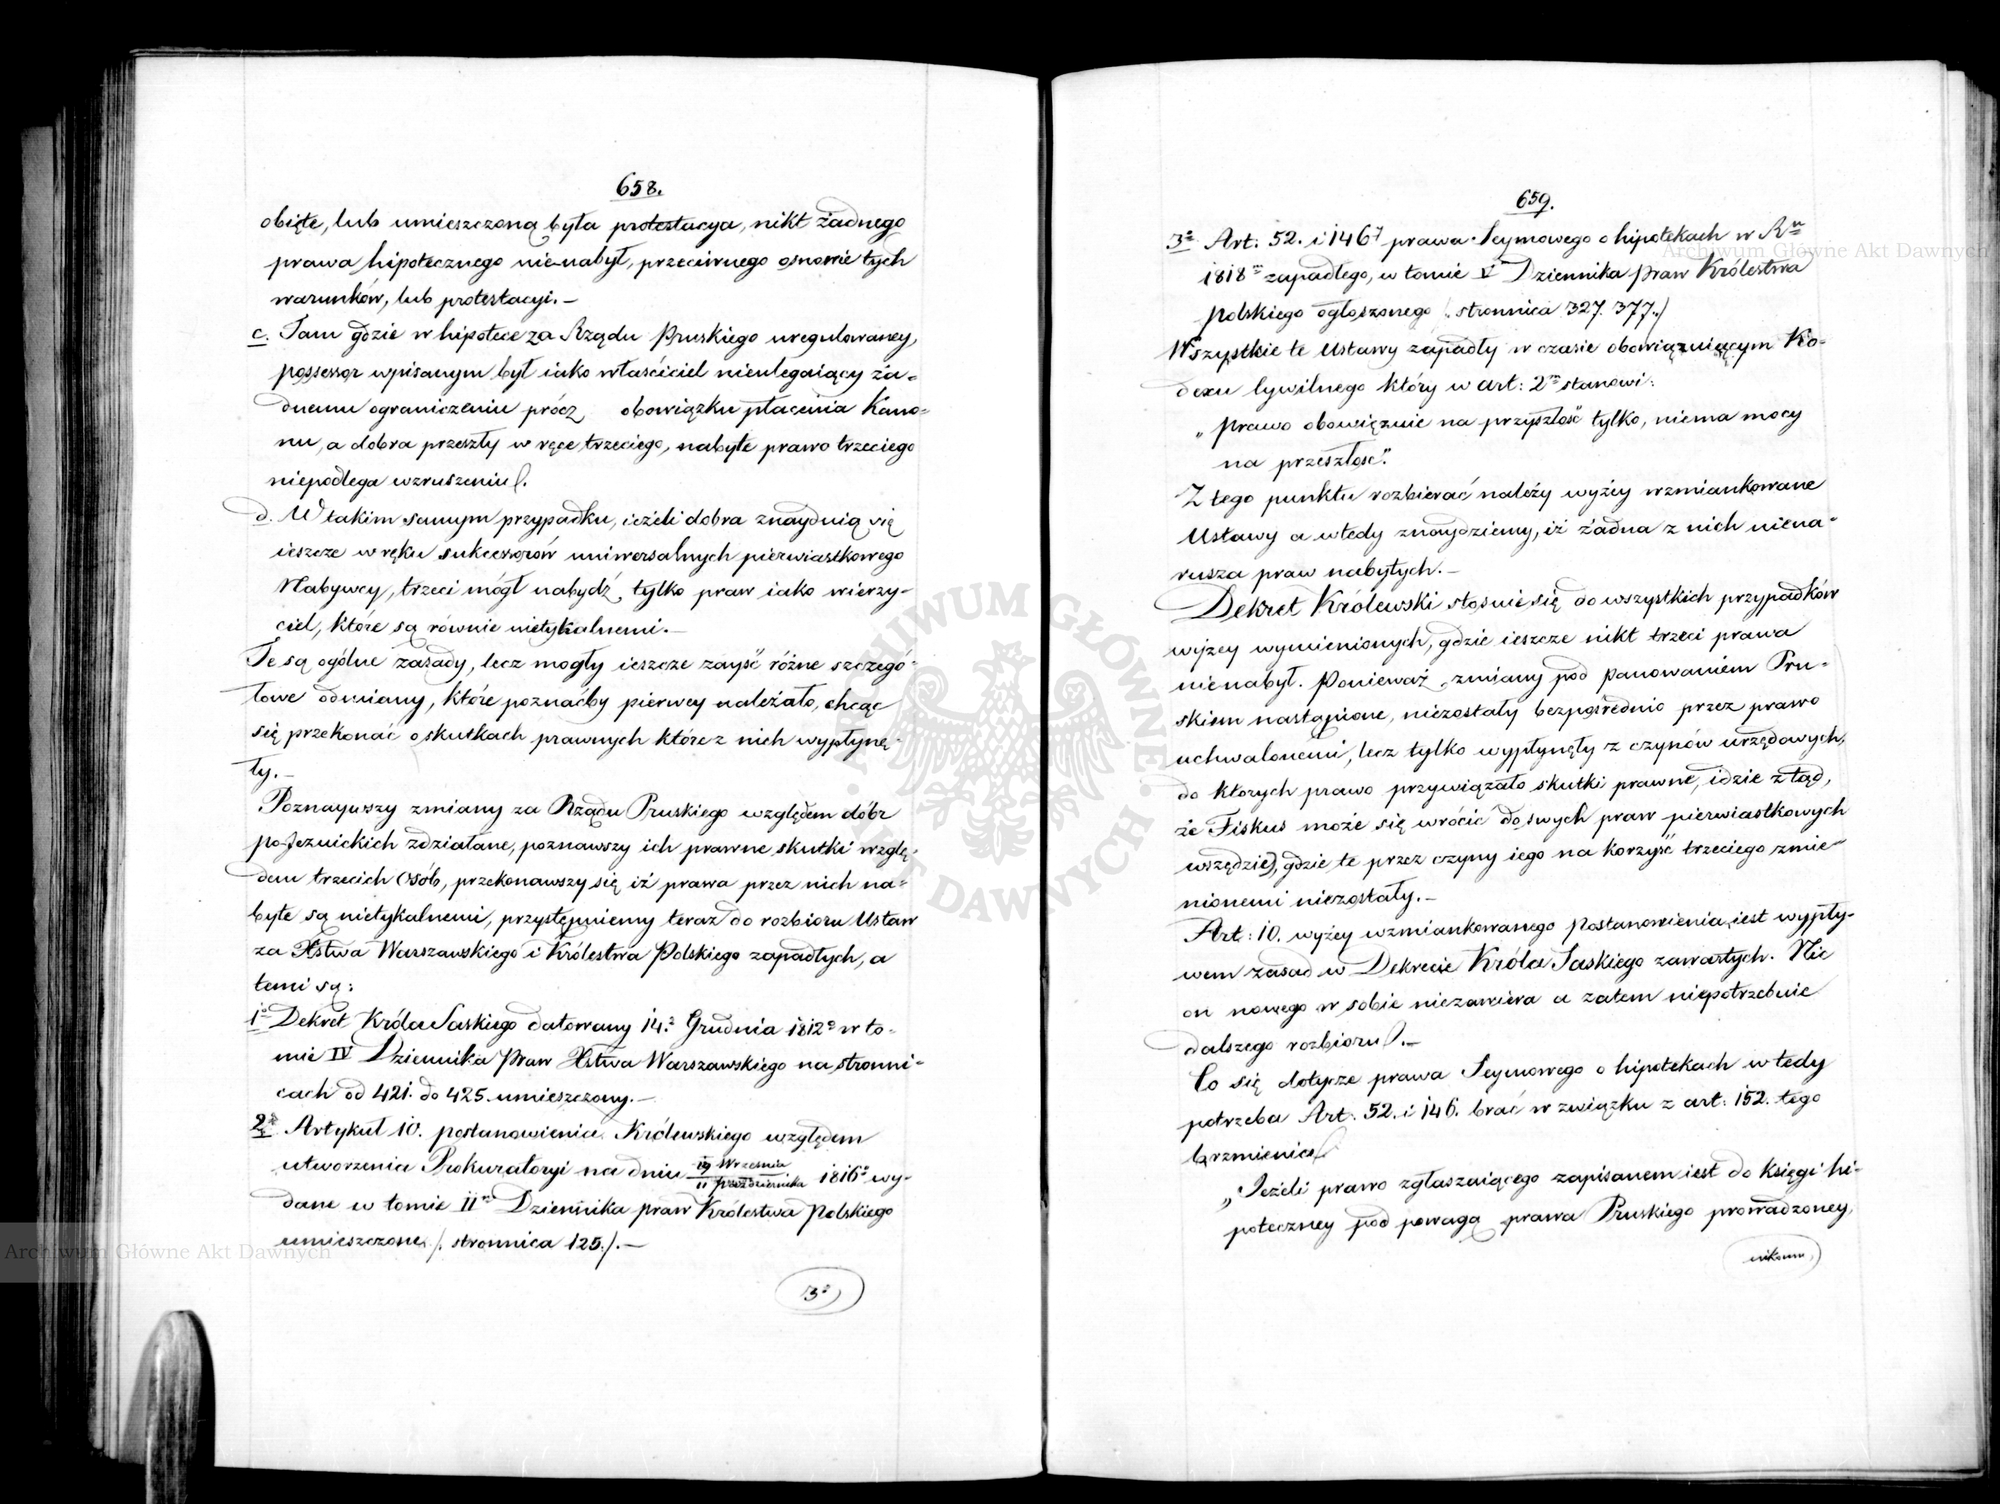 658.
obięte, lub umieszczoną była protestacya, nikt żadnego
prawa hipotecznego nienabył, przeciwnego osnowie tych
warunków, lub protestacyi.—
c. Tam gdzie w hipotece za Rządu Pruskiego uregulowaney,
possessor wpisanym był iako właściciel nieulegaiący ża-
dnemu ograniczeniu prócz obowiązku płacenia Kano-
nu, a dobra przeszły w ręce trzeciego, nabyte prawo trzeciego
niepodlega wzruszeniu.
d. W takim samym przypadku, ieżeli dobra znayduią się
ieszcze w ręku sukcessorów uniwersalnych pierwiastkowego
Nabywcy, trzeci mógł nabydź tylko praw iako wierzy-
ciel, które są równie nietykalnemi.—
Te są ogólne zasady, lecz mogły ieszcze zayść różne szczegó-
łowe odmiany, które poznaćby pierwey należało, chcąc
się przekonać o skutkach prawnych które z nich wypłynę-
ły.—
Poznaywszy zmiany za Rządu Pruskiego względem dóbr
poJezuickich zdziałane, poznawszy ich prawne skutki wzglę-
dem trzecich Osób, przekonawszy się iż prawa przez nich na-
byte są nietykalnemi, przystępuiemy teraz do rozbioru Ustaw
za Xstwa Warszawskiego i Królestwa Polskiego zapadłych, a
temi są:
1o Dekret Króla Saskiego datowany 14.o Grudnia 1812o w to-
mie IV Dziennika Praw Xstwa Warszawskiego na stronni-
cach od 421. do 425. umieszczony.—
2o Artykuł 10. postanowienia Królewskiego względem
utworzenia Prokuratoryi na dniu 19 Września / 11 Października 1816o wy-
dane w tomie IIm Dziennika praw Królestwa Polskiego
umieszczone /. stronnica 125./.—
3o
659.
3o Art: 52. i 146 prawa Seymowego o hipotekach w Rm
1818m zapadłego, w tomie V Dziennika Praw Królestwa
Polskiego ogłoszonego /. stronnica 327. 377./
Wszystkie te Ustawy zapadły w czasie obowiązuiącym Ko-
dexu Cywilnego który w art: 2m stanowi:
„Prawo obowiązuie na przyszłość tylko, niema mocy
na przeszłość".
Z tego punktu rozbierać należy wyżey wzmiankowane
Ustawy a wtedy znaydziemy, iż żadna z nich niena-
rusza praw nabytych.—
Dekret Królewski stosuie się do wszystkich przypadków
wyżey wymienionych, gdzie ieszcze nikt trzeci prawa
nienabył. Ponieważ zmiany pod panowaniem Pru-
skiem nastąpione, niezostały bezpośrednio przez prawo
uchwalonemi, lecz tylko wypłynęły z czynów urzędowych,
do których prawo przywiązało skutki prawne, idzie z tąd,
że Fiskus może się wrócić do swych praw pierwiastkowych
wszędzie, gdzie te przez czyny iego na korzyść trzeciego zmie-
nionemi niezostały.—
Art: 10. wyżey wzmiankowanego Postanowienia, iest wypły-
wem zasad w Dekrecie Króla Saskiego zawartych. Nic
on nowego w sobie niezawiera a zatem niepotrzebuie
dalszego rozbioru.—
Co się dotycze prawa Seymowego o hipotekach wtedy
potrzeba Art: 52. i 146. brać w związku z art: 152. tego
brzmienia
„Jeżeli prawo zgłaszaiącego zapisanem iest do księgi hi-
poteczney pod powagą prawa Pruskiego prowadzoney,
nikomu,
ARCHIWUM GŁÓWNE AKT DAWNYCH
Archiwum Główne Akt Dawnych
Archiwum Główne Akt Dawnych